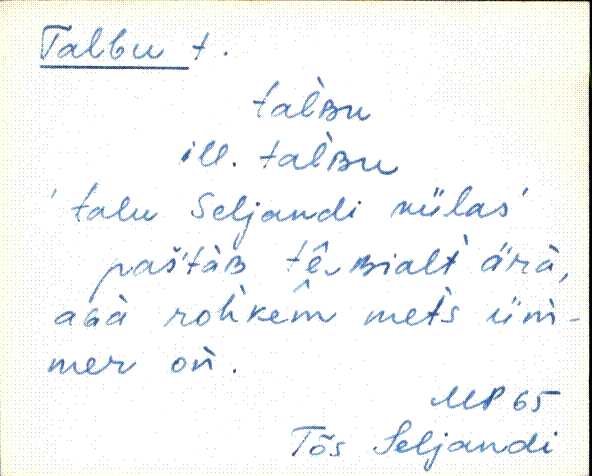 Talbu t.
talʙu
ill. talʙu
'talu Seljandi külas'
paš'tàʙ tê ʙialt ärà,
aGà rohkêm mets üm-
mer on.
MP 65
Tõs Seljandi